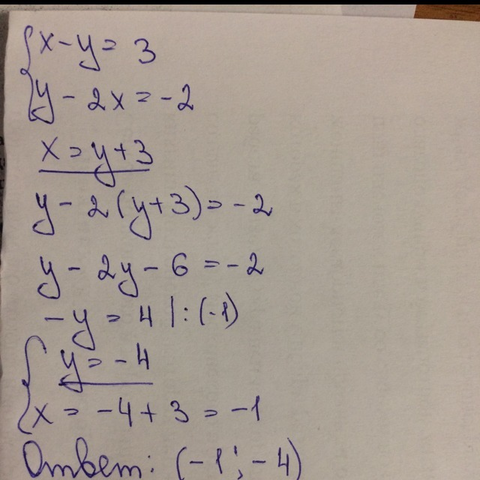 { x - y = 3
y - 2x = -2
x = y + 3
y - 2(y + 3) = -2
y - 2y - 6 = -2
-y = 4 | : (-1)
{ y = -4
x = -4 + 3 = -1
Ответ: (-1; -4)